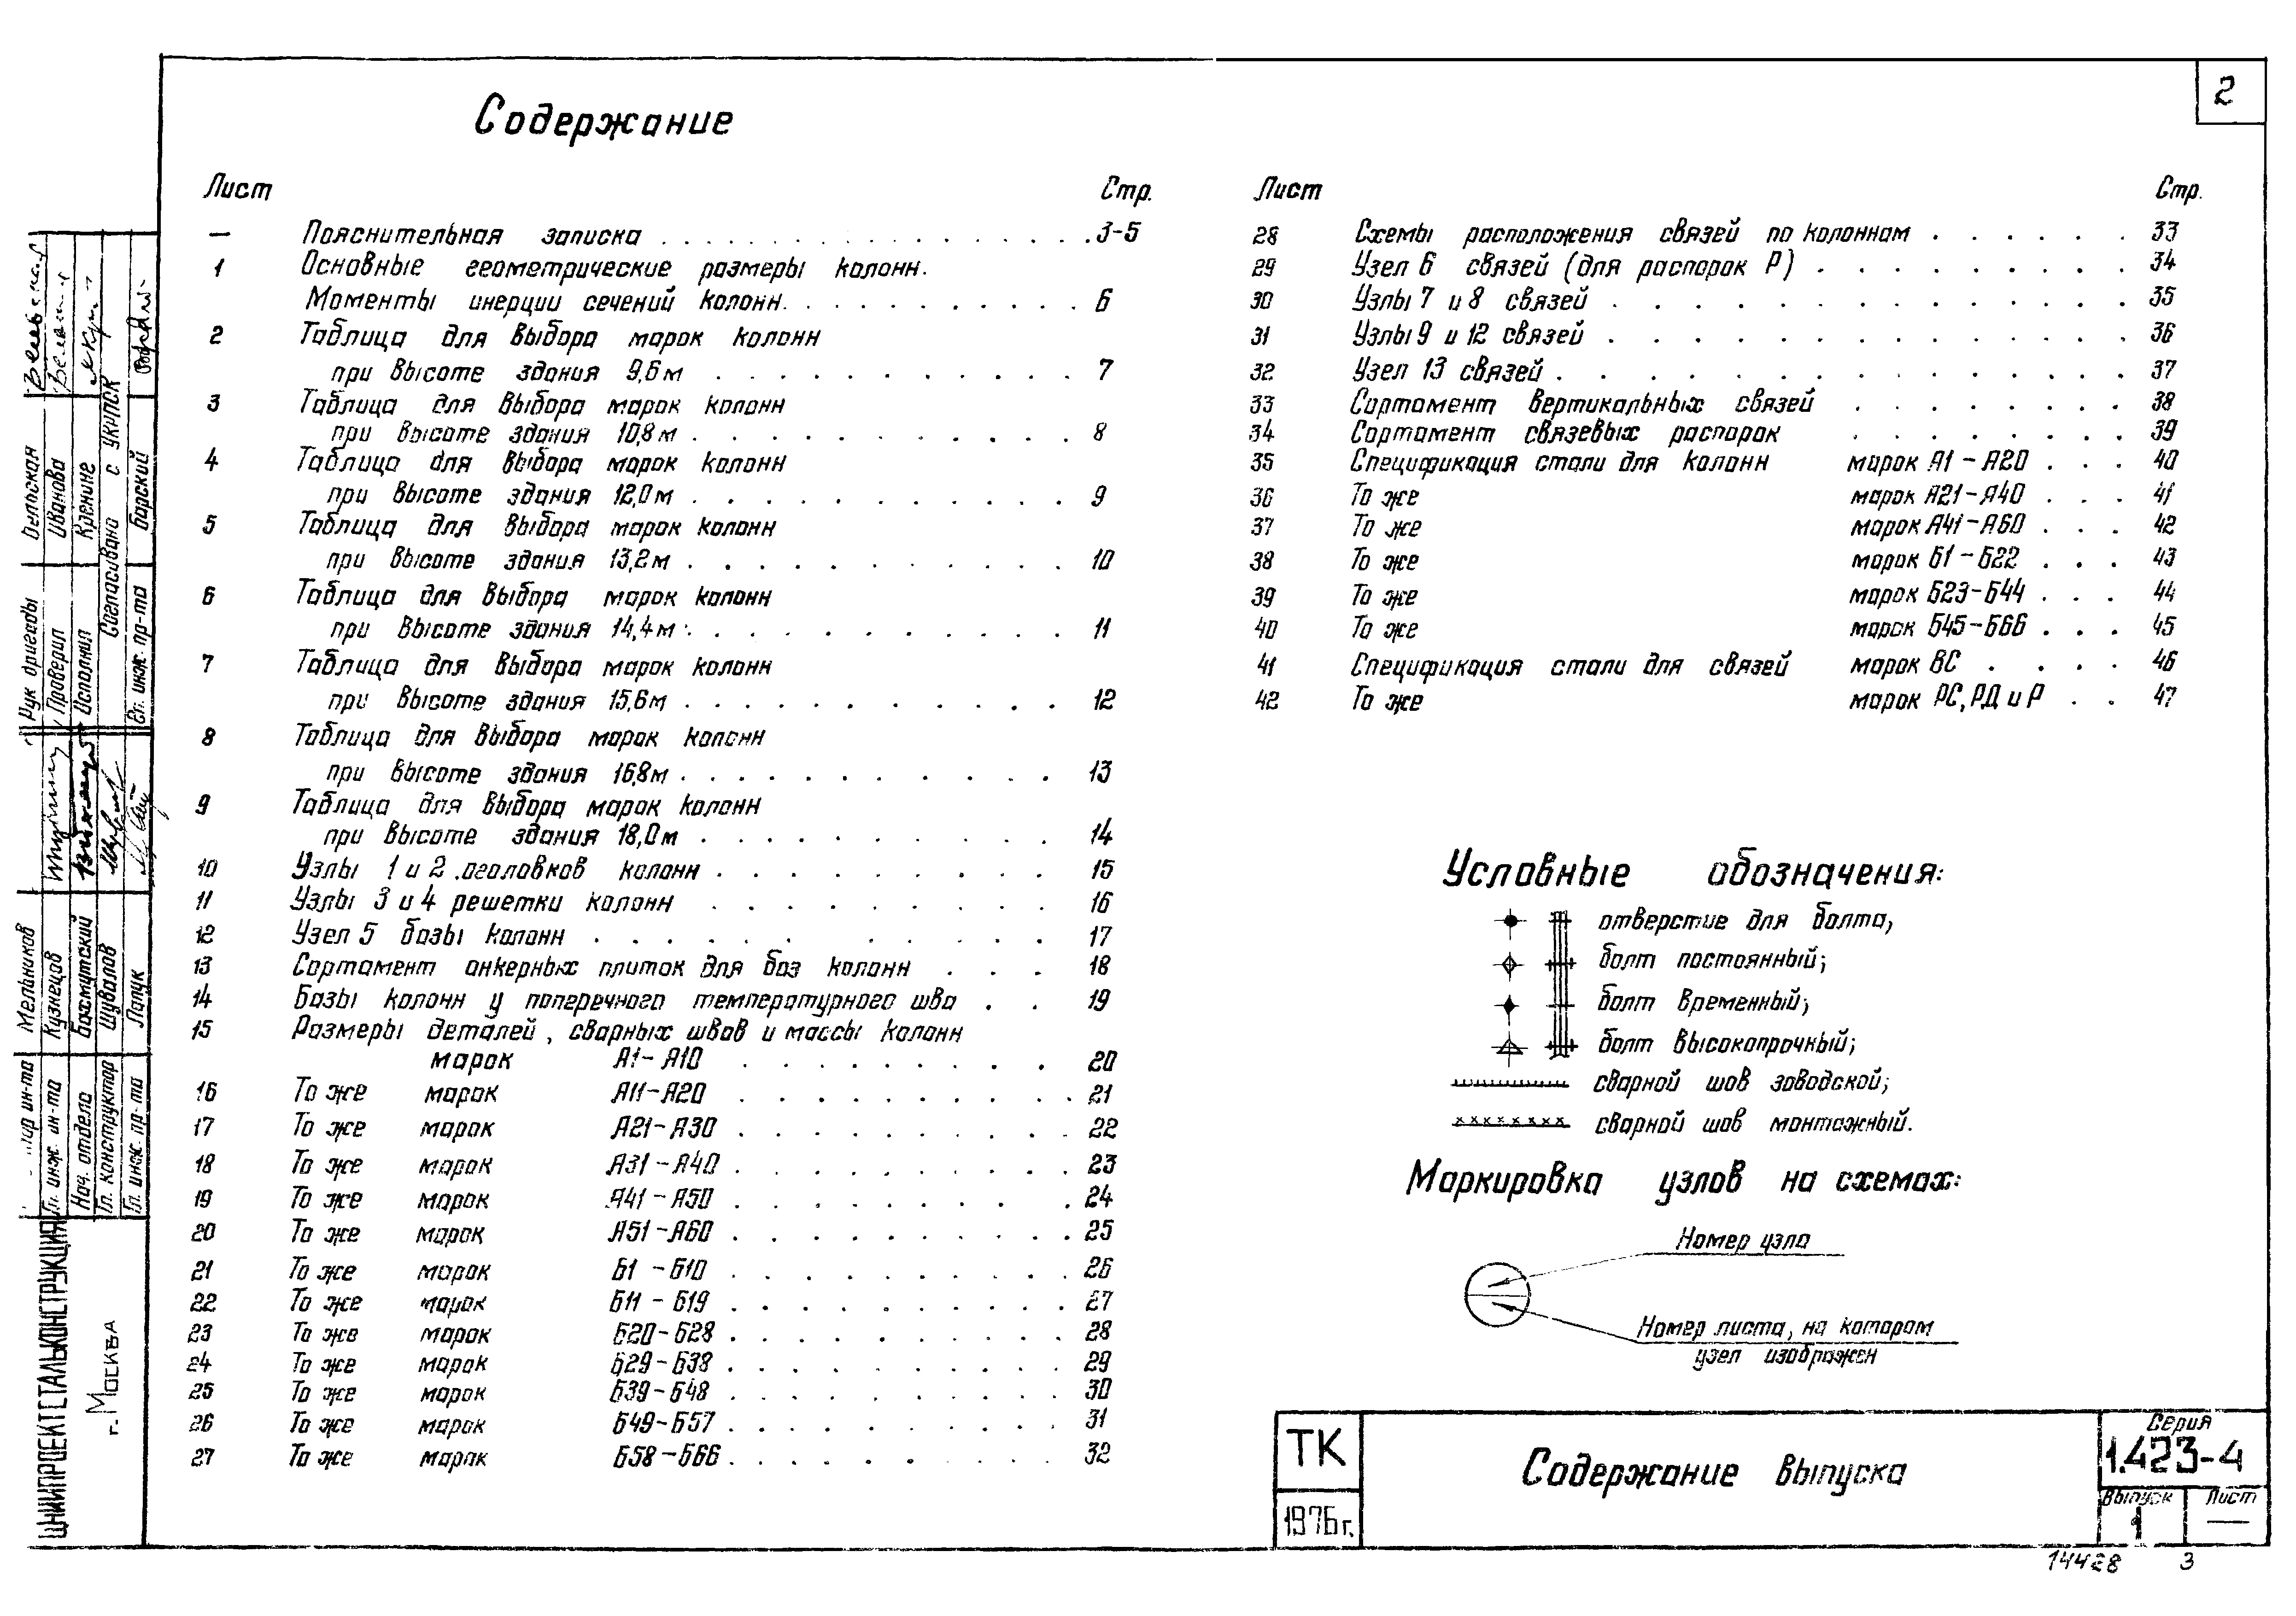 2
Содержание
Лист Стр.
— Пояснительная записка . . . . . . . . . . . . . . . . 3-5
1 Основные геометрические размеры колонн.
Моменты инерции сечений колонн. . . . . . . . . . . 6
2 Таблица для выбора марок колонн
при высоте здания 9,6м . . . . . . . . . . . . 7
3 Таблица для выбора марок колонн
при высоте здания 10,8м . . . . . . . . . . . . 8
4 Таблица для выбора марок колонн
при высоте здания 12,0м . . . . . . . . . . . . 9
5 Таблица для выбора марок колонн
при высоте здания 13,2м . . . . . . . . . . . . 10
6 Таблица для выбора марок колонн
при высоте здания 14,4м . . . . . . . . . . . . 11
7 Таблица для выбора марок колонн
при высоте здания 15,6м . . . . . . . . . . . . 12
8 Таблица для выбора марок колонн
при высоте здания 16,8м . . . . . . . . . . . . 13
9 Таблица для выбора марок колонн
при высоте здания 18,0м . . . . . . . . . . . . 14
10 Узлы 1 и 2 оголовков колонн . . . . . . . . . . 15
11 Узлы 3 и 4 решетки колонн . . . . . . . . . 16
12 Узел 5 базы колонн . . . . . . . . . . . 17
13 Сортамент анкерных плиток для баз колонн . . . 18
14 Базы колонн у поперечного температурного шва . . 19
15 Размеры деталей, сварных швов и массы колонн
марок А1-А10 . . . . . . . . . 20
16 То же марок А11-А20 . . . . . . . . . . 21
17 То же марок А21-А30 . . . . . . . . . . 22
18 То же марок А31-А40 . . . . . . . . . . 23
19 То же марок А41-А50 . . . . . . . . . 24
20 То же марок А51-А60 . . . . . . . . . . 25
21 То же марок Б1-Б10 . . . . . . . . . . 26
22 То же марок Б11-Б19 . . . . . . . . . . 27
23 То же марок Б20-Б28 . . . . . . . . . . 28
24 То же марок Б29-Б38 . . . . . . . . . . 29
25 То же марок Б39-Б48 . . . . . . . . . . 30
26 То же марок Б49-Б57 . . . . . . . . . . 31
27 То же марок Б58-Б66 . . . . . . . . . . 32
Лист Стр.
28 Схемы расположения связей по колоннам . . . . . . 33
29 Узел 6 связей (для распорок Р) . . . . . . . . . 34
30 Узлы 7 и 8 связей . . . . . . . . . . . . . 35
31 Узлы 9 и 12 связей . . . . . . . . . . . . . 36
32 Узел 13 связей . . . . . . . . . . . . . . 37
33 Сортамент вертикальных связей . . . . . . . . 38
34 Сортамент связевых распорок . . . . . . . . 39
35 Спецификация стали для колонн марок А1-А20 . . . 40
36 То же марок А21-А40 . . . 41
37 То же марок А41-А60 . . . 42
38 То же марок Б1-Б22 . . . 43
39 То же марок Б23-Б44 . . . 44
40 То же марок Б45-Б66 . . . 45
41 Спецификация стали для связей марок ВС . . . . 46
42 То же марок РС, РД и Р . . 47
Условные обозначения:
отверстие для болта;
болт постоянный;
болт временный;
болт высокопрочный;
сварной шов заводской;
сварной шов монтажный.
Маркировка узлов на схемах:
Номер узла
Номер листа, на котором
узел изображен
ТК
1976г.
Содержание выпуска
Серия
1.423-4
Выпуск
1
Лист
—
14428 3
ЦНИИПРОЕКТСТАЛЬКОНСТРУКЦИЯ
г. Москва
ин-та Мельников
Гл. инж. ин-та Кузнецов
Нач. отдела Бахмутский
Гл. конструктор Шувалов
Гл. инж. пр-та Лапук
Рук бригады
Проверил Иванова
Исполнил
Согласовано с УКРПСК
Гл. инж. пр-та Барский